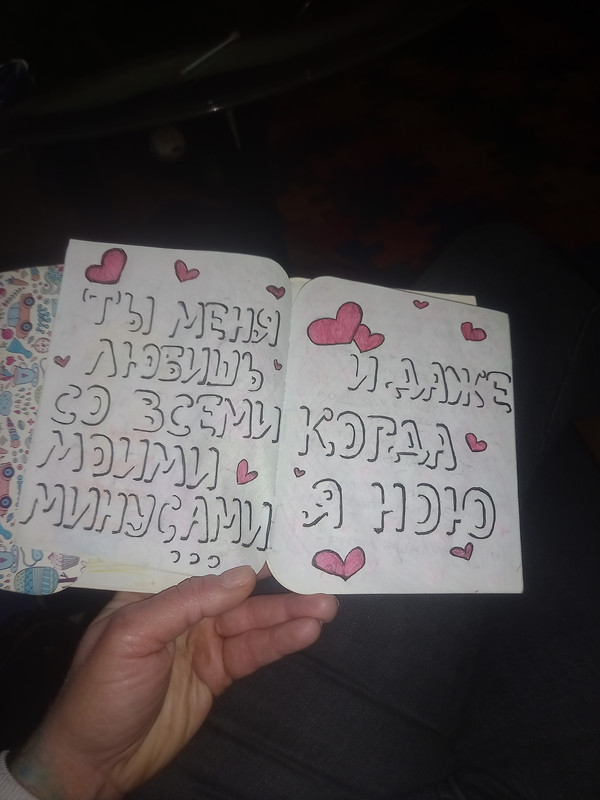 ТЫ МЕНЯ
ЛЮБИШЬ
СО ВСЕМИ
МОИМИ
МИНУСАМИ
...
И ДАЖЕ
КОГДА
Я НОЮ